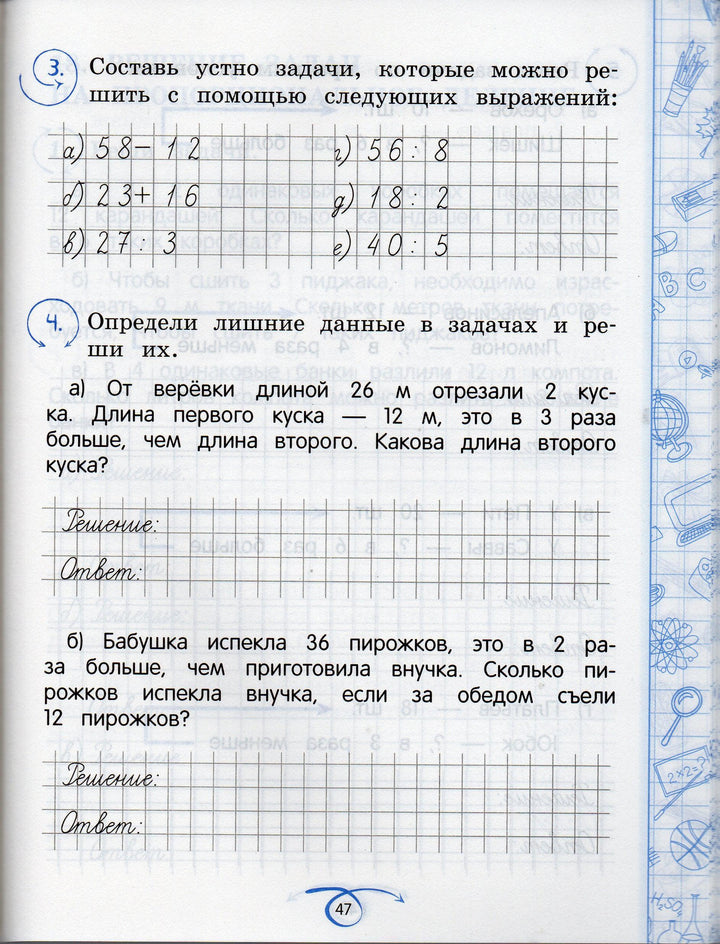 3. Составь устно задачи, которые можно ре-
шить с помощью следующих выражений:
а) 58 − 12
г) 56 : 8
б) 23 + 16
д) 18 : 2
в) 27 : 3
е) 40 : 5
4. Определи лишние данные в задачах и ре-
ши их.
а) От верёвки длиной 26 м отрезали 2 кус-
ка. Длина первого куска — 12 м, это в 3 раза
больше, чем длина второго. Какова длина второго
куска?
Решение:
Ответ:
б) Бабушка испекла 36 пирожков, это в 2 ра-
за больше, чем приготовила внучка. Сколько пи-
рожков испекла внучка, если за обедом съели
12 пирожков?
Решение:
Ответ:
47
B C
A
2×2=?
H₂SO₄